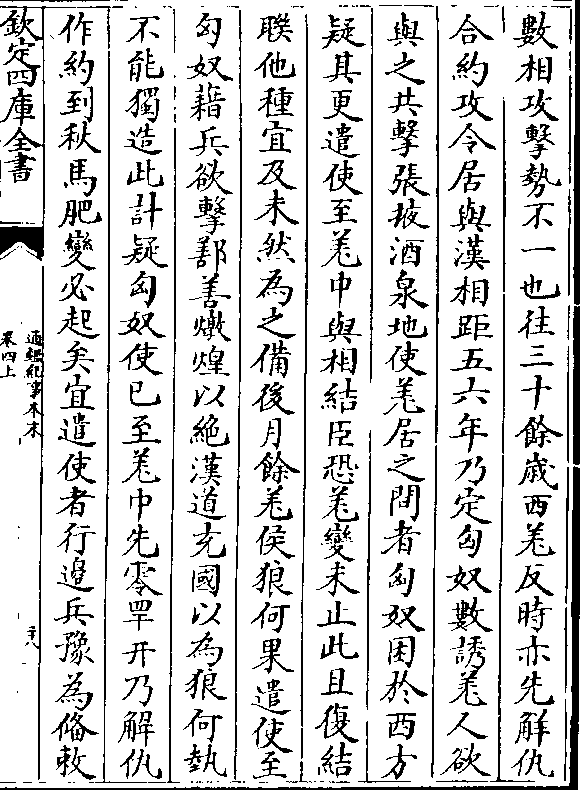 數相攻擊勢不一也往三十餘歲西羌反時亦先解仇
合約攻令居與漢相距五六年乃定匈奴數誘羌人欲
與之共擊張掖酒泉地使羌居之間者匈奴困於西方
疑其更遣使至羌中與相結臣恐羌變未止此且復結
聨他種宜及未然為之備後月餘羌侯狼何果遣使至
匈奴藉兵欲擊鄯善燉煌以絶漢道充國以為狼何勢
不能獨造此計疑匈奴使已至羌中先零罕幵乃解仇
作約到秋馬肥變必起矣宜遣使者行邊兵豫為備敕
欽定四庫全書
通鑑紀事本末
卷四上